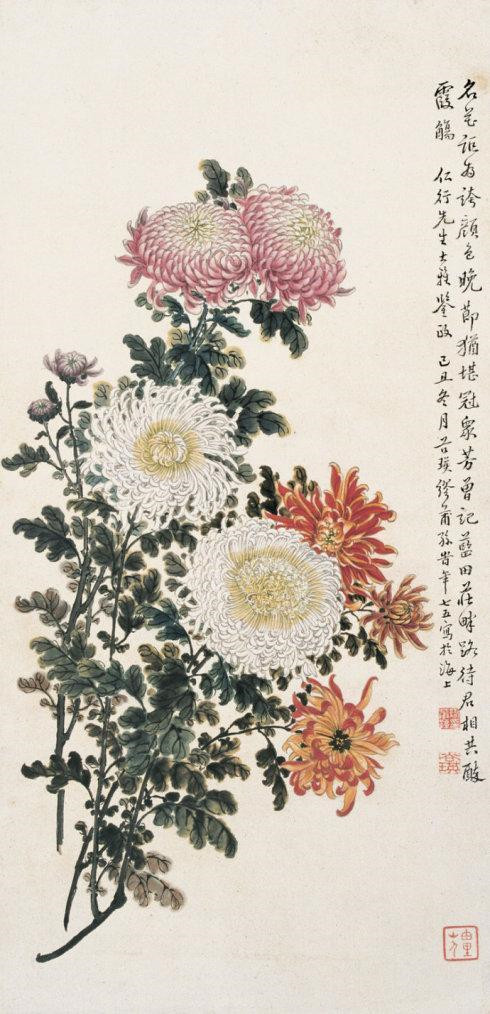 名花詎為誇顏色晚節猶堪冠衆芳曾記藍田莊畔路待君相共醉
霞觴 仁行先生大雅鑒政 己丑冬月 繆莆孫旹年七五寫於海上